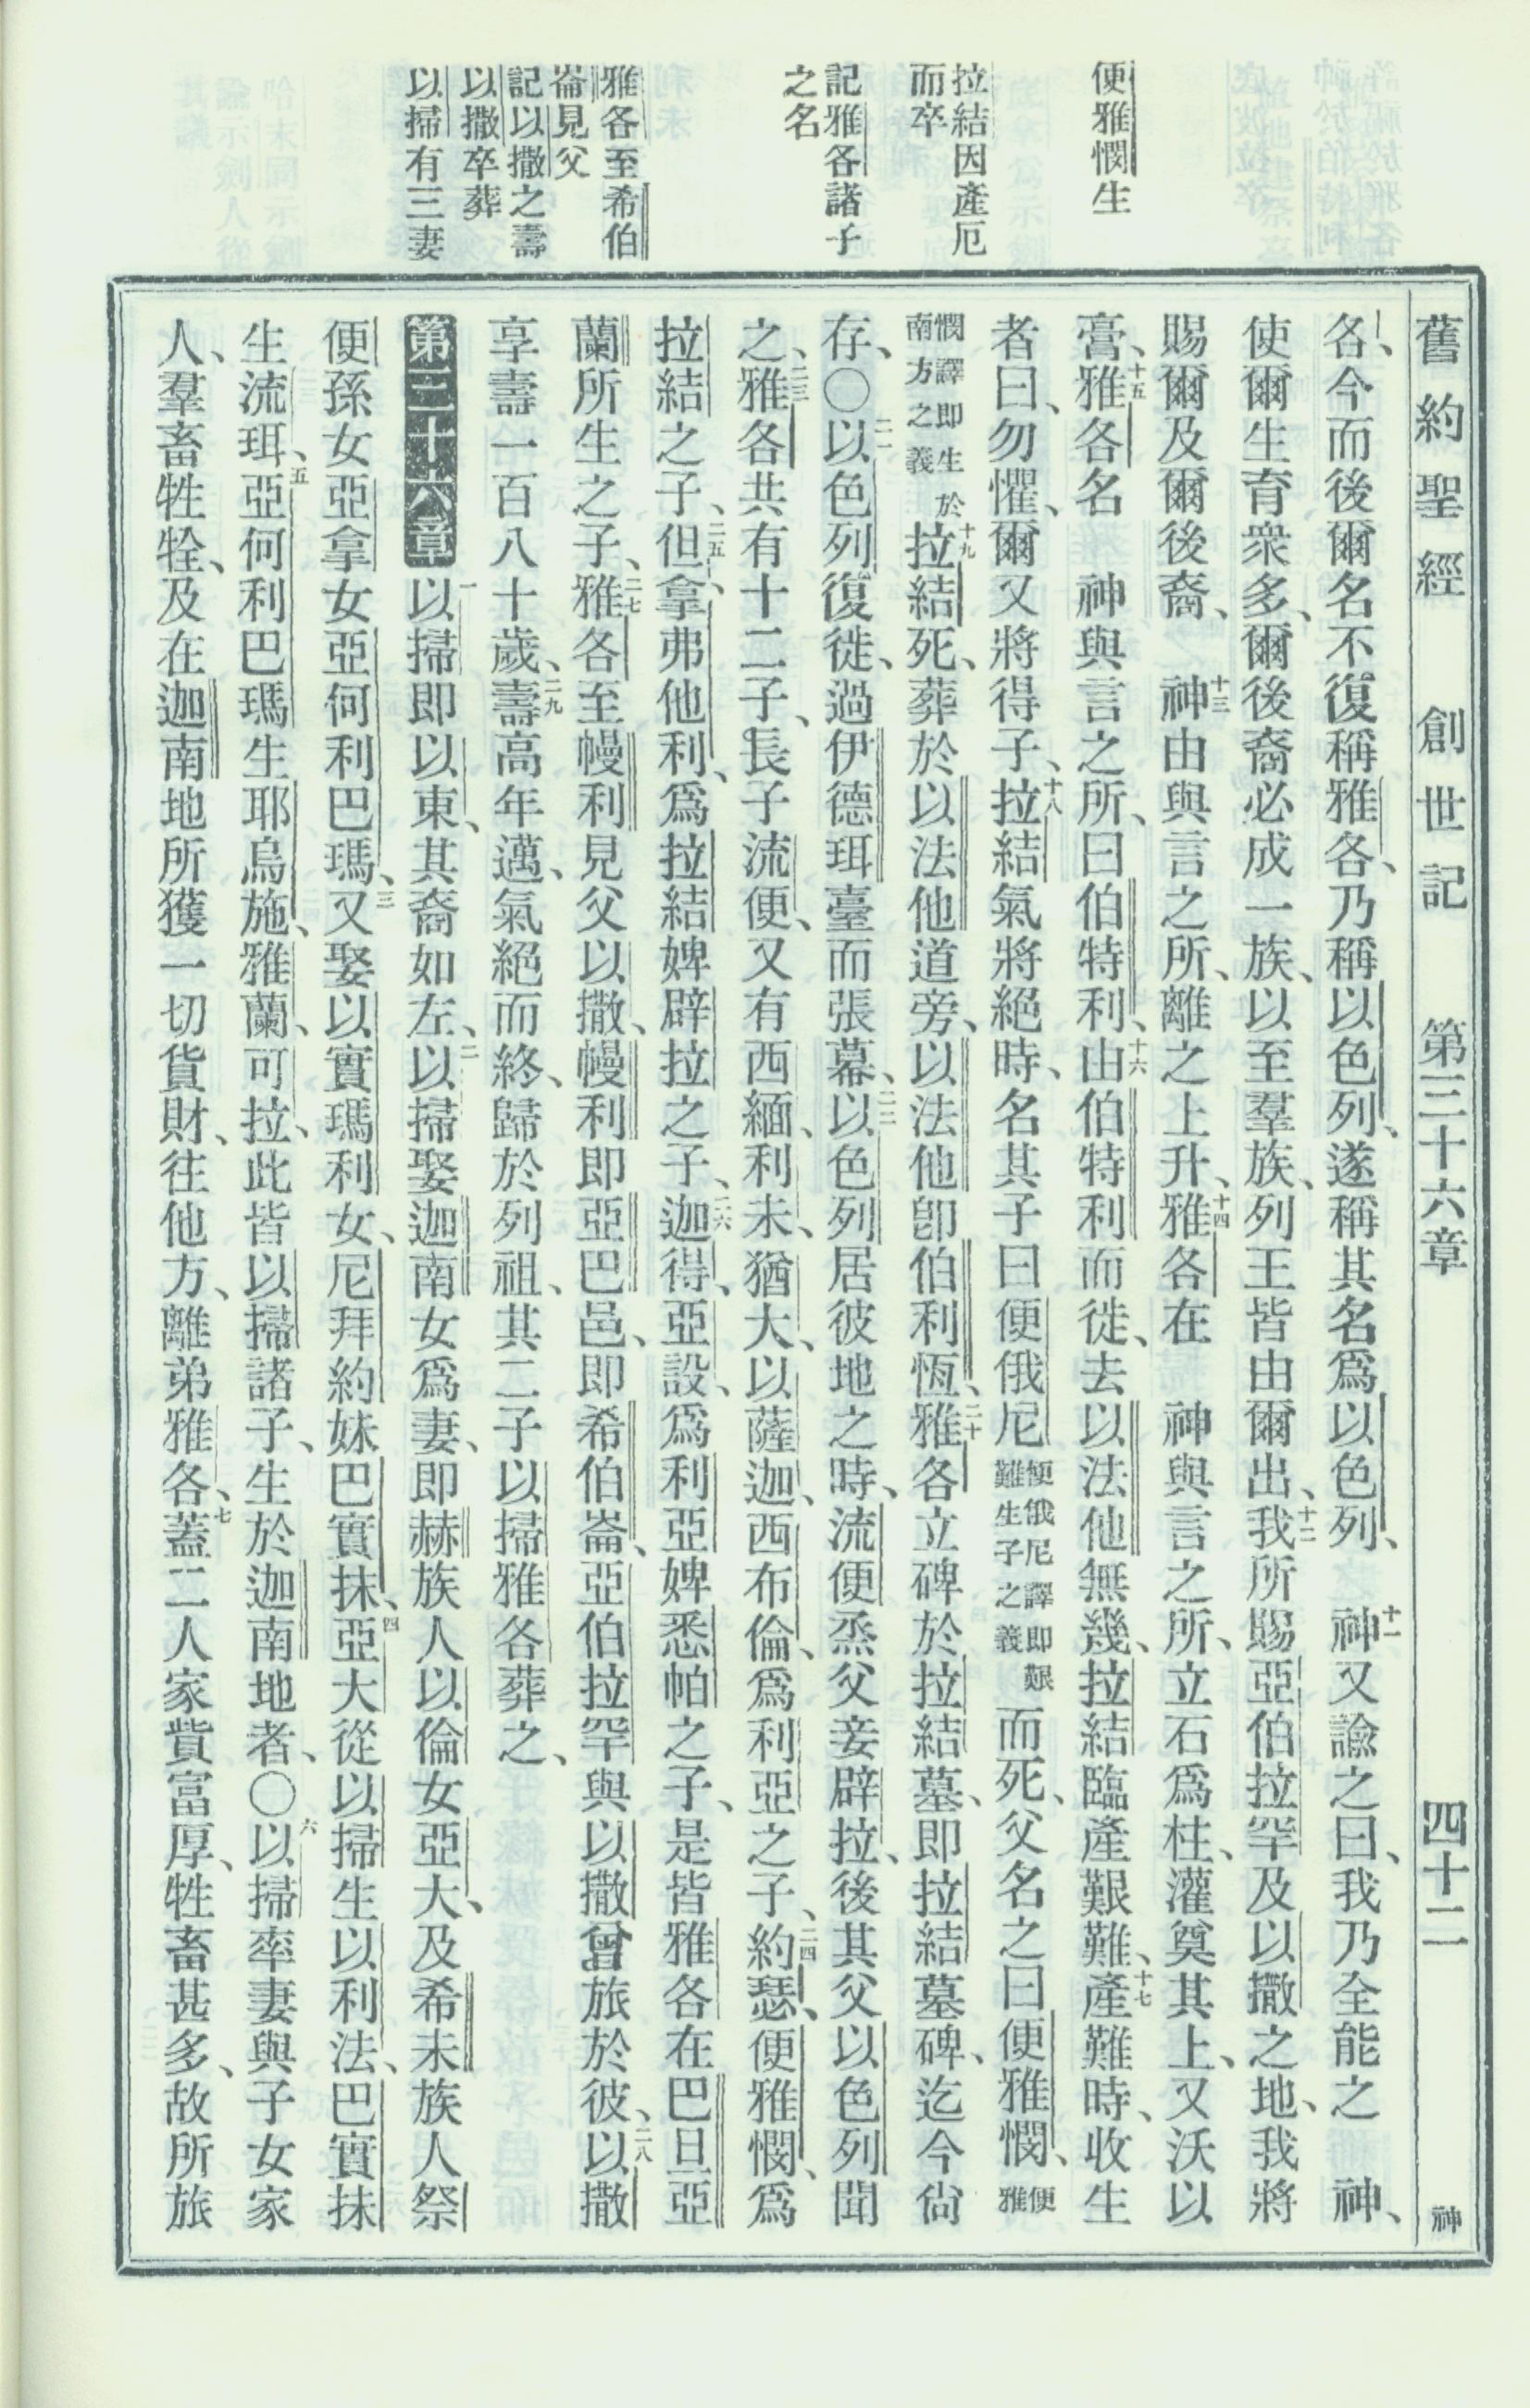 便雅憫生
拉結因產厄
而卒
記雅各諸子
之名
雅各至希伯
崙見父
記以撒之壽
以撒卒葬
以掃有三妻
舊約聖經 創世記 第三十六章 四十二 神
各、今而後爾名不復稱雅各、乃稱以色列、遂稱其名爲以色列、十一神又諭之曰、我乃全能之 神、
使爾生育衆多、爾後裔必成一族、以至羣族、列王皆由爾出、十二我所賜亞伯拉罕及以撒之地、我將
賜爾及爾後裔、十三神由與言之所、離之上升、十四雅各在 神與言之所、立石爲柱、灌奠其上、又沃以
膏、十五雅各名 神與言之所、曰伯特利、十六由伯特利而徙、去以法他無幾、拉結臨產艱難、十七產難時、收生
者曰、勿懼、爾又將得子、十八拉結氣將絕時、名其子曰便俄尼便俄尼譯即艱難生子之義而死、父名之曰便雅憫、便雅
憫譯即生於南方之義十九拉結死、葬於以法他道旁、以法他卽伯利恆、二十雅各立碑於拉結墓、即拉結墓碑、迄今尙
存、〇二一以色列復徙、過伊德珥臺而張幕、二二以色列居彼地之時、流便烝父妾辟拉、後其父以色列聞
之、二三雅各共有十二子、長子流便、又有西緬、利未、猶大、以薩迦、西布倫、爲利亞之子、二四約瑟、便雅憫、爲
拉結之子、二五但、拿弗他利、爲拉結婢辟拉之子、二六迦得、亞設、爲利亞婢悉帕之子、是皆雅各在巴旦亞
蘭所生之子、二七雅各至幔利見父以撒、幔利即亞巴邑、即希伯崙、亞伯拉罕與以撒曾旅於彼、二八以撒
享壽一百八十歲、二九壽高年邁、氣絕而終、歸於列祖、其二子以掃雅各葬之、
第三十六章 一以掃即以東、其裔如左、二以掃娶迦南女爲妻、即赫族人以倫女亞大、及希未族人祭
便孫女亞拿女亞何利巴瑪、三又娶以實瑪利女、尼拜約妹巴實抹、四亞大從以掃生以利法、巴實抹
生流珥、五亞何利巴瑪生耶烏施、雅蘭、可拉、此皆以掃諸子、生於迦南地者、〇六以掃率妻與子女家
人、羣畜牲牷、及在迦南地所獲一切貨財、往他方、離弟雅各、七蓋二人家貲富厚、牲畜甚多、故所旅